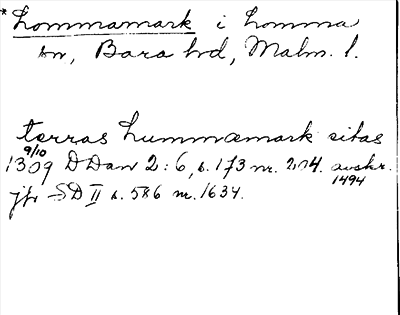 * Lommamark i Lomma
sn, Bara hd, Malm. l.
terras Lummæmark sitas
1309 9/10 DDan 2:6, s. 173 nr. 204. avskr. 1494
jfr SD II s. 586 nr. 1634.